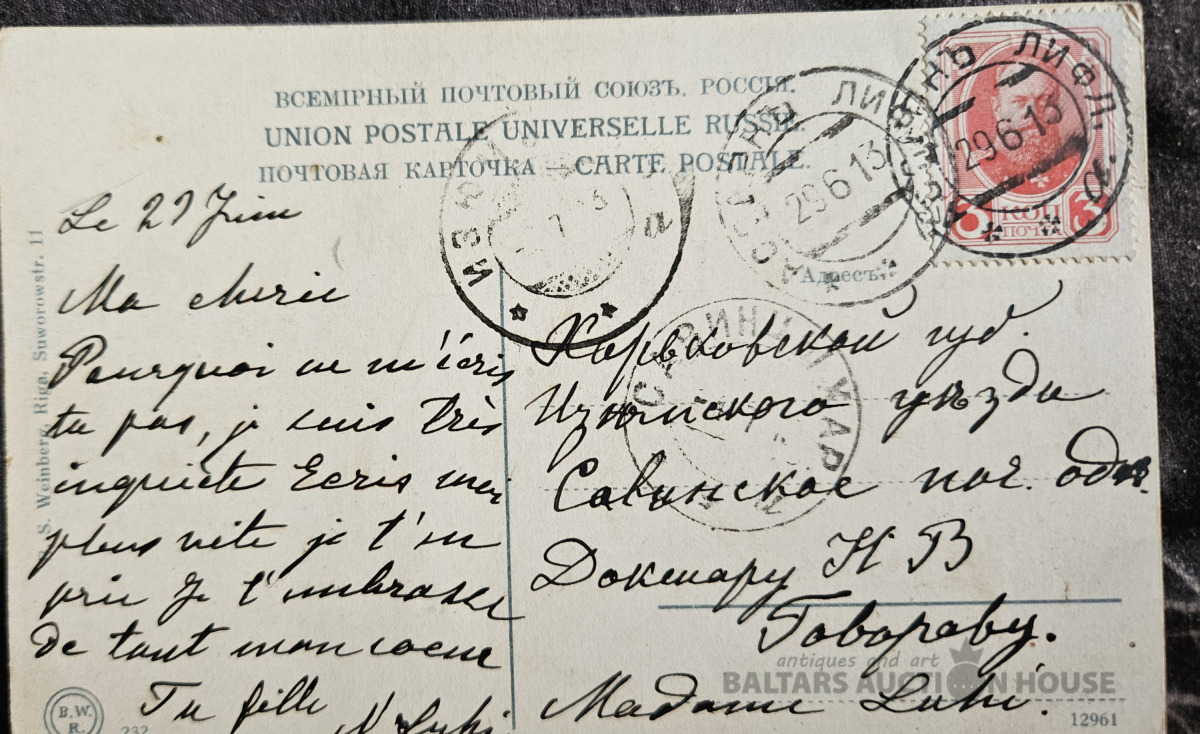 ВСЕМІРНЫЙ ПОЧТОВЫЙ СОЮЗЪ. РОССІЯ.
UNION POSTALE UNIVERSELLE RUSSIE.
ПОЧТОВАЯ КАРТОЧКА — CARTE POSTALE.
Адресъ
ЛИФЛ.
29.6.13
а
ЛИФ
29.6.13
ИЗЮ
а
САВИНЦЫ ХАР
КОП
ПОЧТ
3
S. Weinberg, Riga, Suworowstr. 11
Le 29 Juin
Ma cherie
Pourquoi ne m'écris
tu pas, je suis très
inquiete Ecris moi
plus vite je t'en
prie Je t'embrasse
de tout mon coeur
Ta fille
N Luhi
Харьковской губ.
Изюмского уѣзда
Савинское поч. отд.
Доктару Н В
Говорову.
Madame Luhi.
B. W.
R.
232
12961
antiques and art
BALTARS AUCTION HOUSE